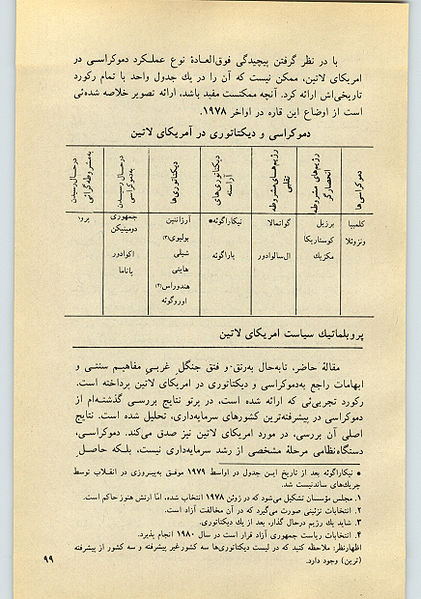 با در نظر گرفتن پیچیدگی فوق‌العادهٔ نوع عملکرد دموکراسی در
امریکای لاتین، ممکن نیست که آن را در یك جدول واحد با تمام رکورد
تاریخی‌اش ارائه کرد. آنچه ممکنست مفید باشد، ارائه تصویر خلاصه شده‌ئی
است از اوضاع این قاره در اواخر ۱۹۷۸.
دموکراسی و دیکتاتوری در آمریکای لاتین
دموکراسی‌ها
کلمبیا
ونزوئلا
رژیم‌های مشروطه انحصارگر
برزیل
کوستاریکا
مکزیك
رژیم‌های مشروطه تقلبی
گواتمالا
ال‌سالوادور
دیکتاتوری‌های آراسته
نیکاراگوئه●
پاراگوئه
دیکتاتوری‌ها
آرژانتین
بولیوی(۳)
شیلی
هایتی
هندوراس(۲)
اوروگوئه
درحـال رسیـدن به‌دموکراسی
جمهوری
دومینیکن
اکوادور
پاناما
درحـال رسیدن به‌مشروطه‌گرائی
پرو
پروبلماتیك سیاست امریکای لاتین
مقالهٔ حاضر، تابه‌حال به‌رتق و فتق جنگل غربی مفاهیم سنتی و
ابهامات راجع به‌دموکراسی و دیکتاتوری در امریکای لاتین پرداخته است.
رکورد تجربی‌ئی که ارائه شده است، در پرتو نتایج بررسی گذشته‌ام از
دموکراسی در پیشرفته‌ترین کشورهای سرمایه‌داری، تحلیل شده است. نتایج
اصلی آن بررسی، در مورد امریکای لاتین نیز صدق می‌کند. دموکراسی،
دستگاه‌نظامی مرحلهٔ مشخصی از رشد سرمایه‌داری نیست، بلکه حاصل
● نیکاراگوئه بعد از تاریخ ایـن جدول در اواسط ۱۹۷۹ موفـق به‌پیـروزی در انقلاب توسط
چریك‌های ساندنیست شد.
۱. مجلس مؤسسان تشکیل می‌شود که در ژوئن ۱۹۷۸ انتخاب شده، اما ارتش هنوز حاکم است.
۲. انتخابات تزئینی صورت می‌گیرد که در آن مخالفت آزاد است.
۳. شاید یك رژیم درحال گذار، بعد از یك دیکتاتوری.
۴. انتخابات ریاست جمهوری آزاد قرار است در سال ۱۹۸۰ انجام پذیرد.
اظهارنظر: ملاحظه کنید که در لیست دیکتاتوری‌ها سه کشور غیر پیشرفته و سه کشور از پیشرفته
(ترین) وجود دارد.
۹۹